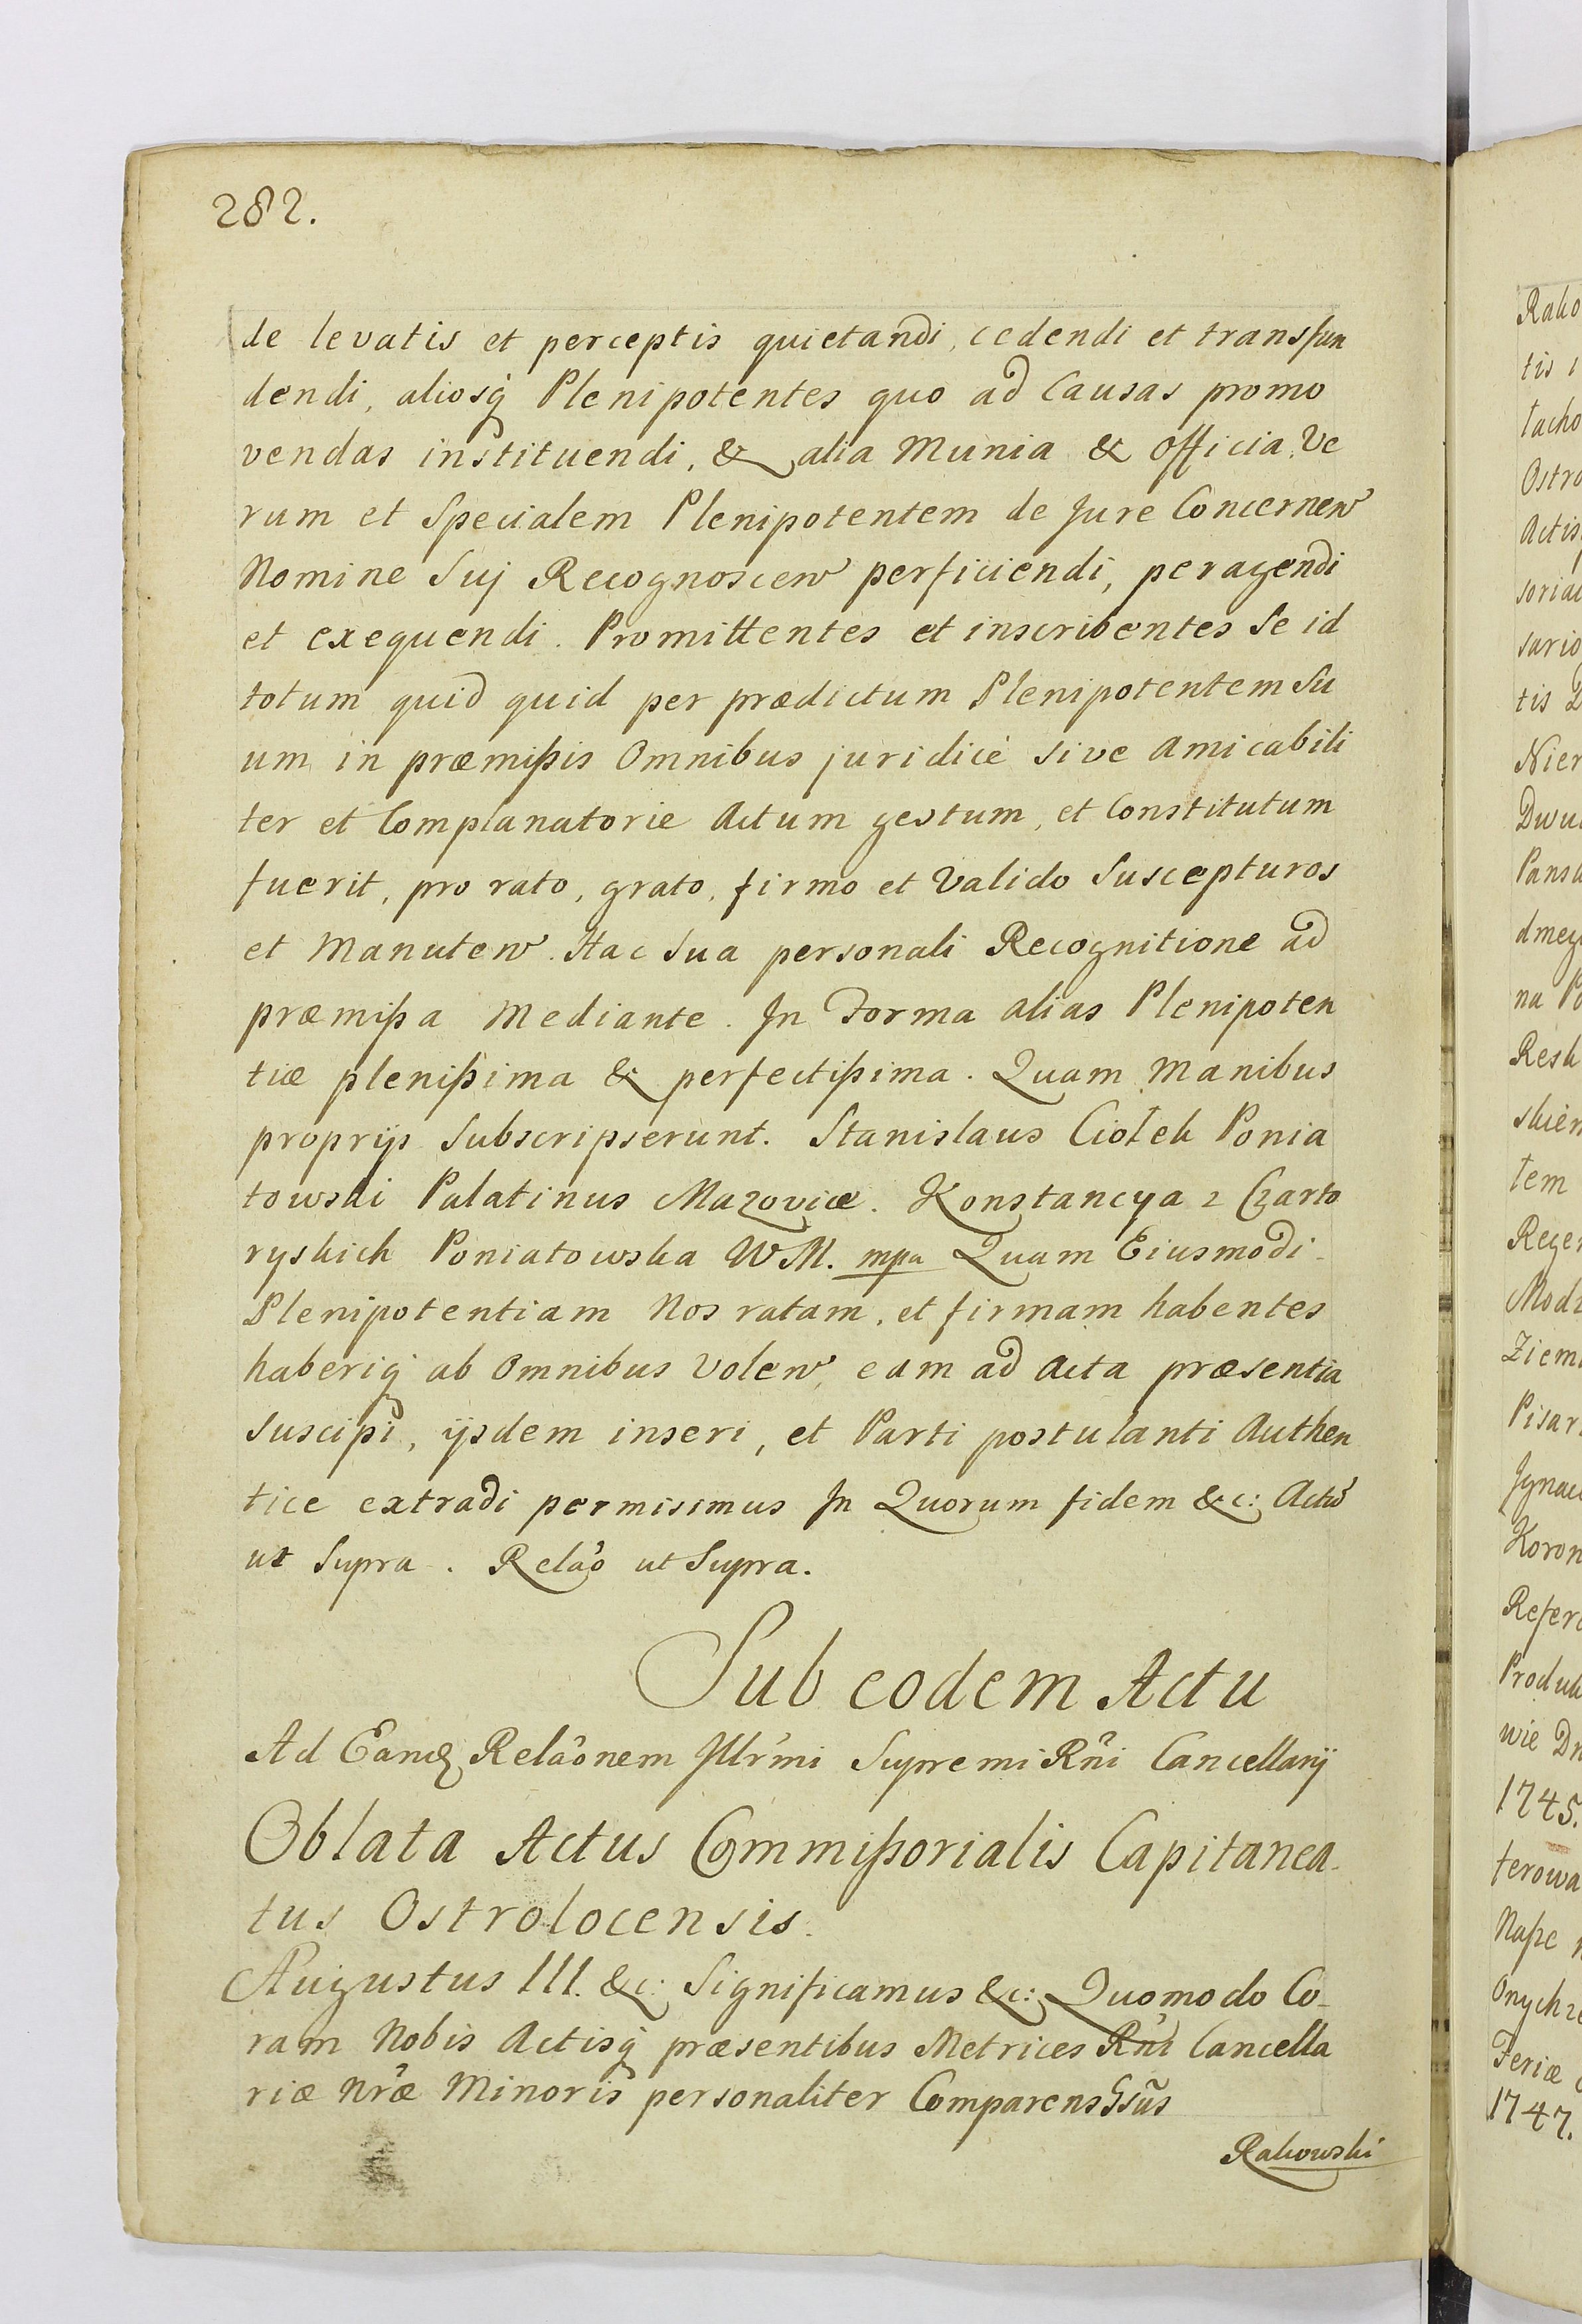 282.
de levatis et perceptis quietandi, cedendi et transfun
dendi, aliosq́ Plenipotentes quo ad Causas promo
vendas instituendi, & alia Munia & officia Ve
rum et Specialem Plenipotentem de Jure Concernen̄
Nomine Suj Recognoscen̄ perficiendi, peragendi
et exequendi. Promittentes et inscribentes Se id
totum quid quid per prædictum Plenipotentem Su
um in præmißis Omnibus juridicè sive Amicabili
ter et Complanatorie Actum gestum, et Constitutum
fuerit, pro rato, grato, firmo et Valido Suscepturos
et Manuten̄. Hac Sua personali Recognitione ad
præmißa Mediante. In Forma alias Plenipoten
tiæ plenißima & perfectißima. Quam Manibus
proprijs Subscripserunt. Stanislaus Ciołek Ponia
towski Palatinus Mazoviæ. Konstancya z Czarto
ryskich Poniatowska WM. mpa Quam Eiusmodi
Plenipotentiam Nos ratam, et firmam habentes
haberiq́ ab Omnibus Volen̄, eam ad Acta præsentia
suscipi, ijsdem inseri, et Parti postulanti Authen
tice extradi permisimus In Quorum fidem &c: Actū
ut Supra. Relão ut Supra.
Sub eodem Actu
Ad Eamd Relãonem Jllr̃mi Supremi Rñi Cancellarij
Oblata Actus Commißorialis Capitanea-
tus Ostrolocensis.
Augustus III. &c: Significamus &c: Quomodo Co-
ram Nobis Actisq́ præsentibus Metrices Rñi Cancella
riæ Nr̃æ Minoris personaliter Comparens Gsũs
Rakowski
Rako
tis
tacho
Ostro
Actis
soria
sario
tis
Nier
Dwu
Pans
dmey
na Po
Resk
skien
tem
Regen
Modz
Ziem
Pisar
Jgnac
Koron
Refer
Produk
wie Dn
1745.
terowa
Naße
Onychze
Feriæ
1747.